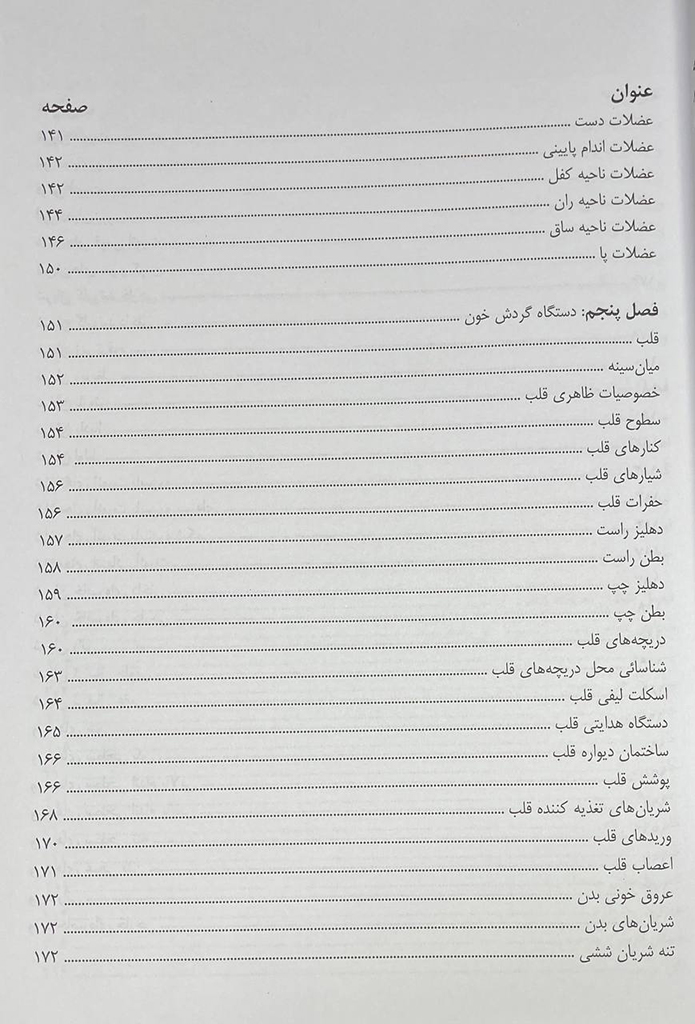 عنوان صفحه
عضلات دست ۱۴۱
عضلات اندام پایینی ۱۴۲
عضلات ناحیه کفل ۱۴۲
عضلات ناحیه ران ۱۴۴
عضلات ناحیه ساق ۱۴۶
عضلات پا ۱۵۰
فصل پنجم: دستگاه گردش خون ۱۵۱
قلب ۱۵۱
میان‌سینه ۱۵۲
خصوصیات ظاهری قلب ۱۵۳
سطوح قلب ۱۵۴
کنارهای قلب ۱۵۴
شیارهای قلب ۱۵۶
حفرات قلب ۱۵۶
دهلیز راست ۱۵۷
بطن راست ۱۵۸
دهلیز چپ ۱۵۹
بطن چپ ۱۶۰
دریچه‌های قلب ۱۶۰
شناسائی محل دریچه‌های قلب ۱۶۳
اسکلت لیفی قلب ۱۶۴
دستگاه هدایتی قلب ۱۶۵
ساختمان دیواره قلب ۱۶۶
پوشش قلب ۱۶۶
شریان‌های تغذیه کننده قلب ۱۶۸
وریدهای قلب ۱۷۰
اعصاب قلب ۱۷۱
عروق خونی بدن ۱۷۲
شریان‌های بدن ۱۷۲
تنه شریان ششی ۱۷۲